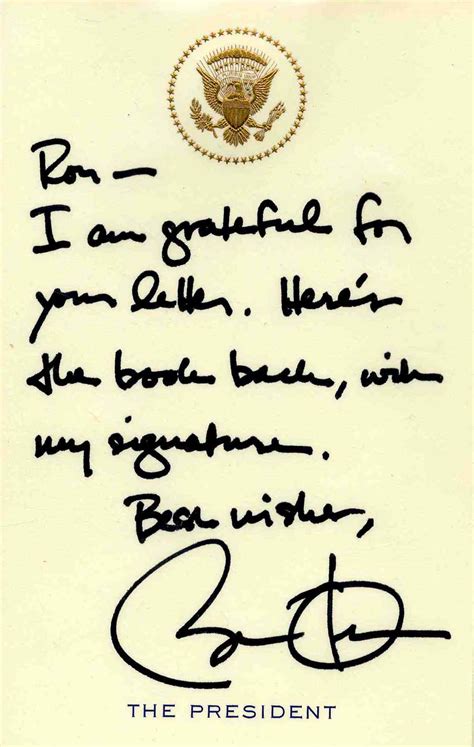 Ron —
I am grateful for
your letter. Here's
the book back, with
my signature.
Best wishes,
THE PRESIDENT